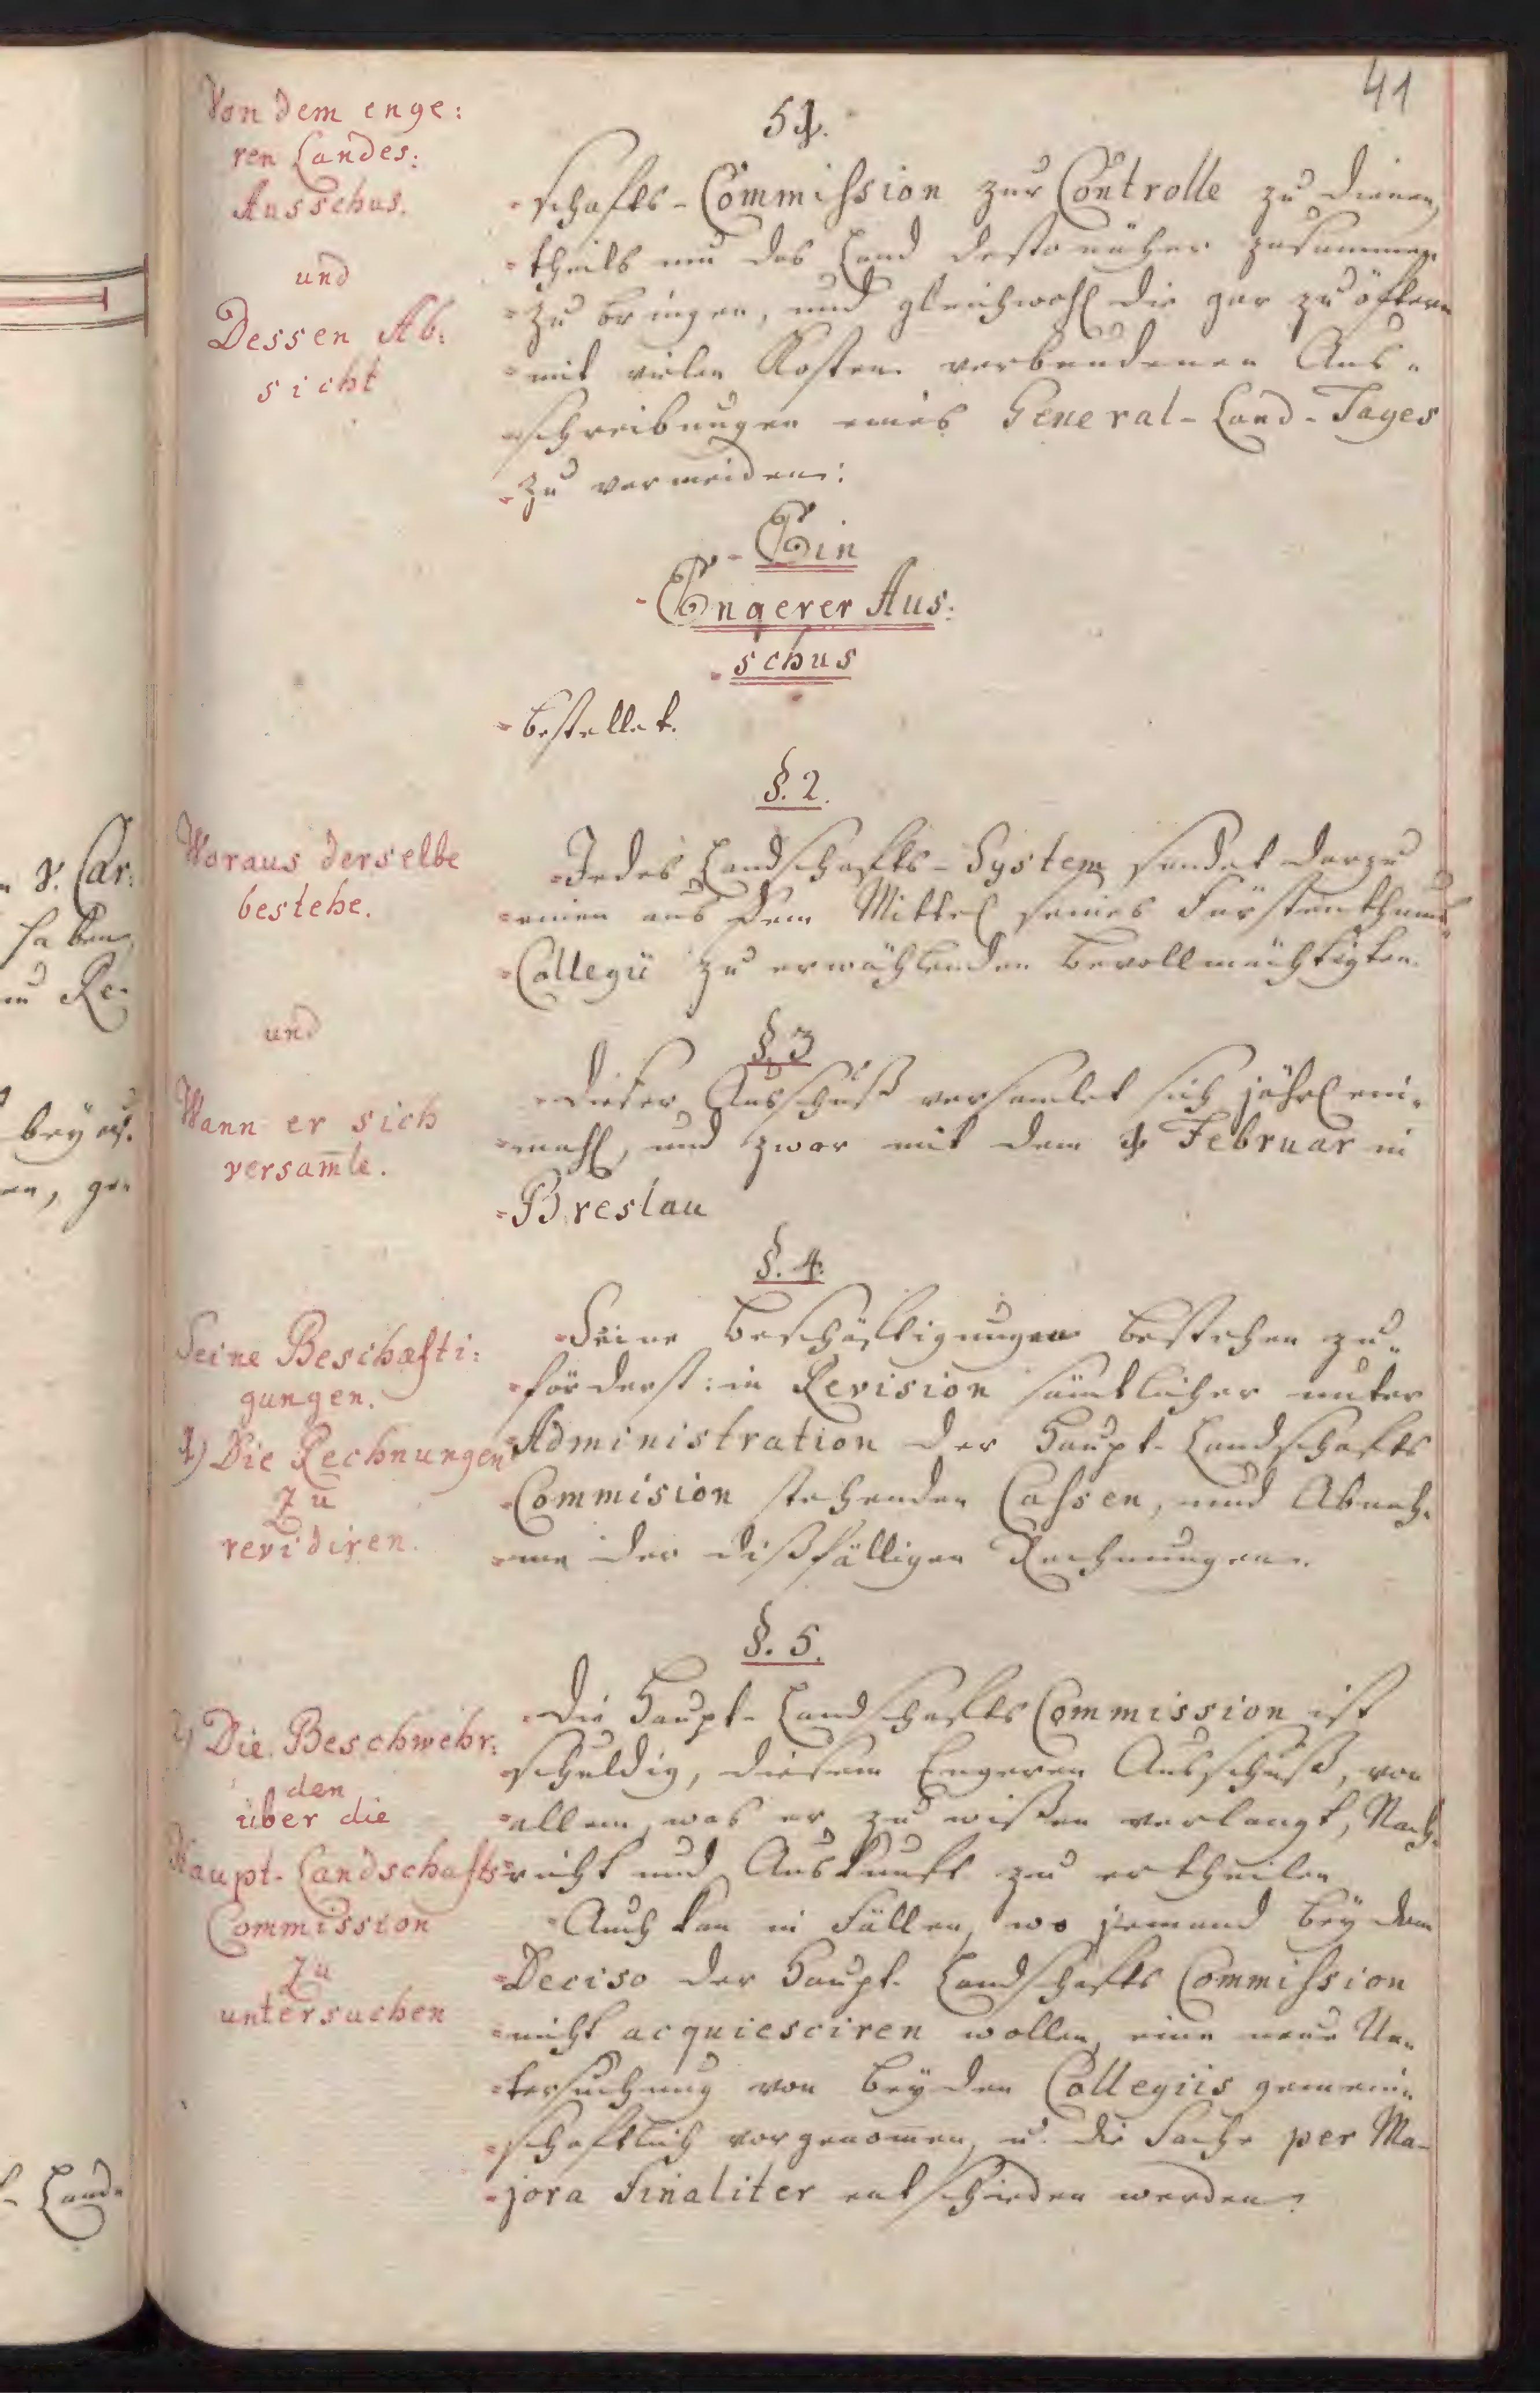 41
51.
Von dem enge:
ren Landes:
Ausschus.
und
Dessen Ab:
sicht
schafts-Commission zur Controlle zu dienen,
theils um das Land desto näher zusammen
zu bringen, und gleichwohl die gar zu öftern
mit vielen Kosten verbundenen Aus-
schreibungen eines General-Land-Tages
zu vermeiden:
Ein
Engerer Aus:
schus
bestellet.
§. 2.
Woraus derselbe
bestehe.
Jedes Landschafts-System sendet darzu
einen aus dem Mittel seines Fürstenthums
Collegii zu erwählenden Bevollmächtigten.
und
§. 3
Wann er sich
versam̄le.
Dieser Ausschuß versamlet sich jährl ein-
mahl, und zwar mit dem 1 Februar in
Breslau
§. 4.
Seine Beschäfti:
gungen.
1) Die Rechnungen
Zu
revidiren.
Seine Beschäftigungen bestehen zu-
förderst: in Revision sämtlicher unter
Administration der Haupt-Landschafts
Commision stehenden Cassen, und Abneh-
me der dißfälligen Rechnungen.
§. 5.
2) Die Beschwehr:
den
über die
Haupt-Landschafts
Commission
Zu
untersuchen
Die Haupt-Landschafts Commission ist
schuldig, diesem Engeren Ausschuß, von
allem, was er zu wißen verlangt, Nach-
richt und Auskunft zu ertheilen
Auch kan in Fällen, wo jemand bey dem
Deciso der Haupt-Landschafts Commission
nicht acquiesciren wollen, eine neue Un-
tersuchung von beyden Collegiis gemein-
schaftlich vorgenom̄en, u. die Sache per Ma-
jora finaliter entschieden werden.